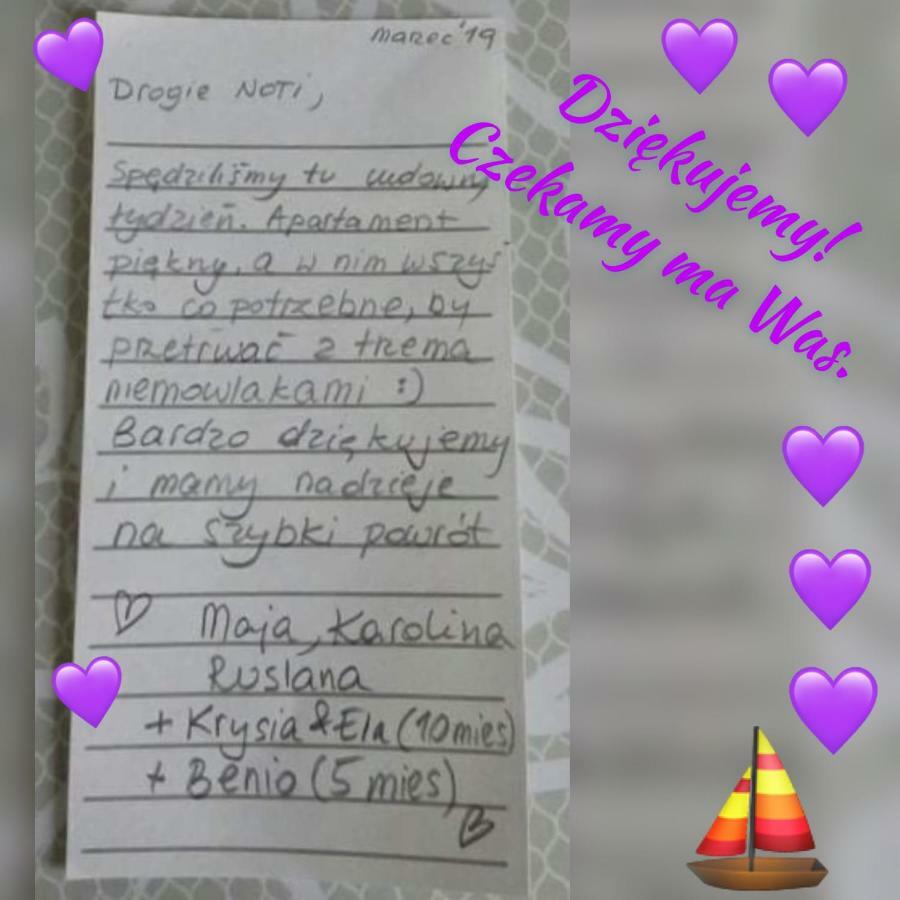 marzec '19
Drogie NOTI,
Spędziliśmy tu cudowny
tydzień. Apartament
piękny, a w nim wszys
tko co potrzebne, by
przetrwać z trzema
niemowlakami :)
Bardzo dziękujemy
i mamy nadzieję
na szybki powrót
♡ Maja, Karolina
Ruslana
+ Krysia & Ela (10 mies)
+ Benio (5 mies)
Dziękujemy!
Czekamy ma Was.